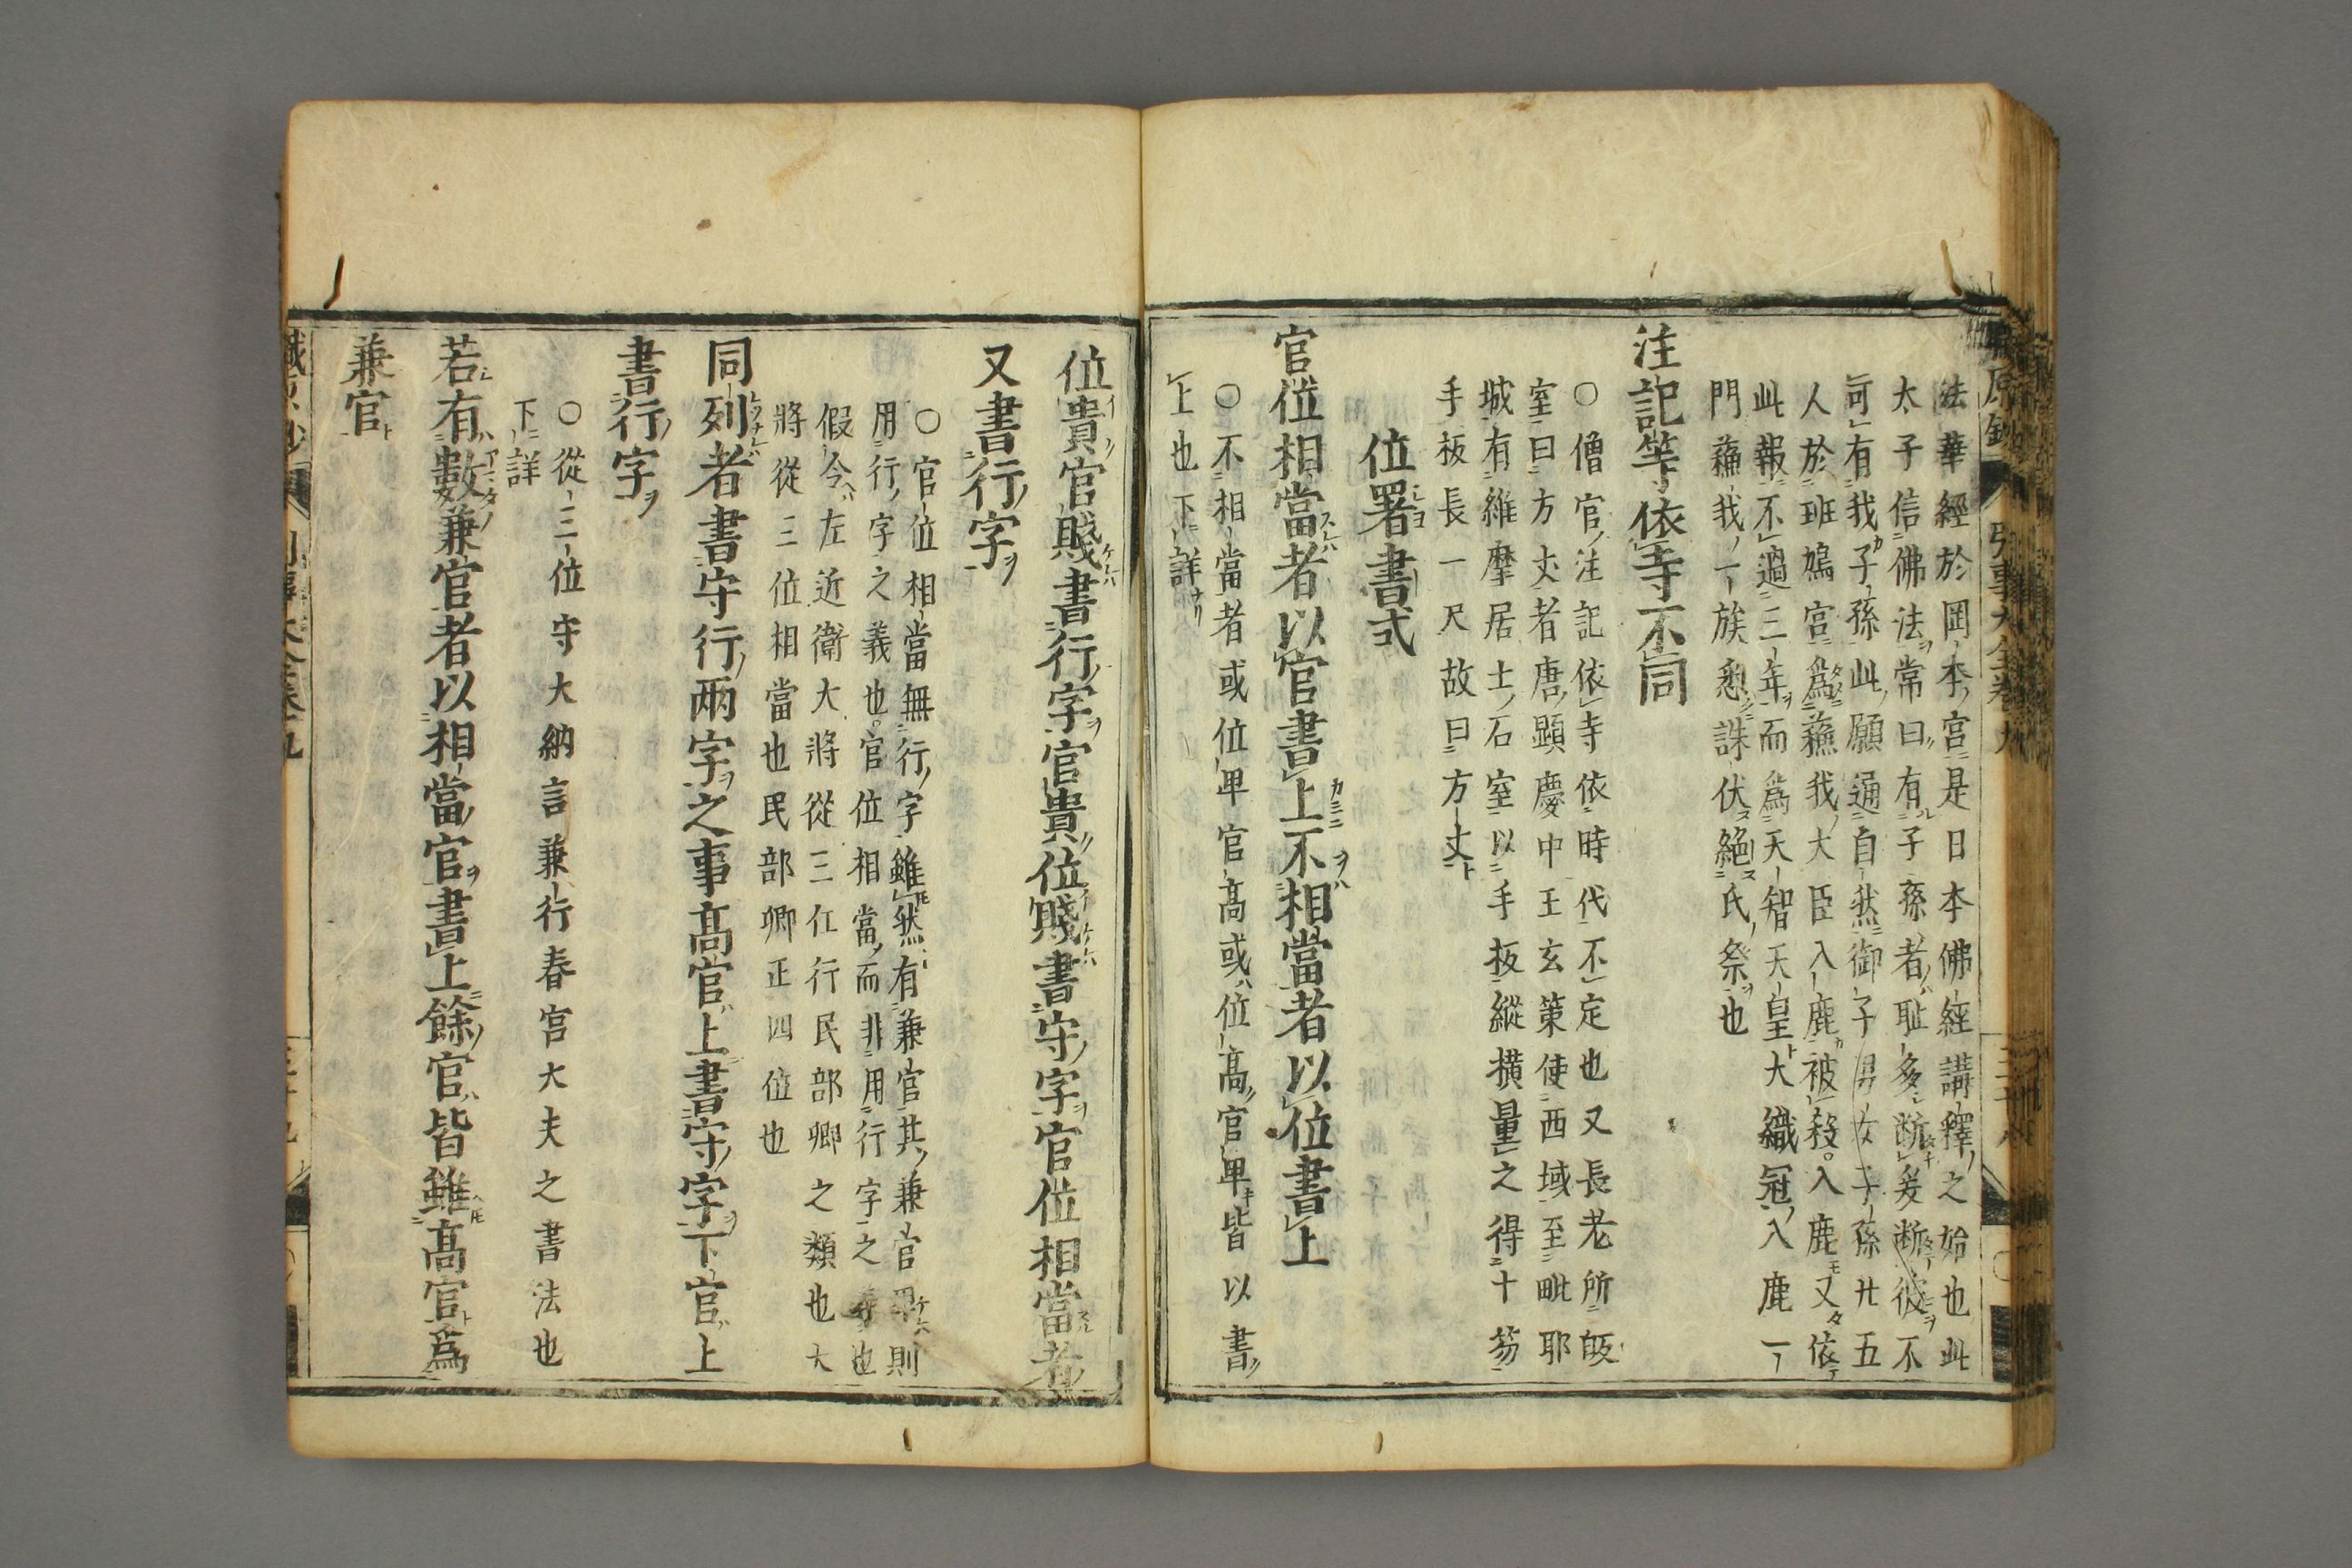 法華經於岡本宮是日本佛經講釋之始也此
太子信佛法常曰有子孫者耻多断爰断彼不
可有我子孫此願通自然御子男女子孫廿五
人於班鳩宮爲蘓我大臣入鹿被殺。入鹿又依
此報不過三年而爲天智天皇大織冠入鹿一
門蘓我ノ一族悉誅伏絕氏祭也
注記等依寺不同
〇僧官注記依寺依時代不定也又長老所皈
室曰方丈者唐顕慶中王玄策使西域至毗耶
城有維摩居士石室以手板縱横量之得十笏
手板長一尺故曰方丈
位署書式
官位相當者以官書上不相當者以位書上
〇不相當者或位卑官高或位高官卑皆以書
上也下詳
位貴官賤書行字官貴位賤書守字官位相當者
又書行字
〇官位相當無行字雖然有兼官其兼官則
用行字之義也。官位相當而非用行字之義也
假令左近衛大將從三位行民部卿之類也大
將從三位相當也民部卿正四位也
同列者書守行兩字之事高官上書守字下官上
書行字
〇從三位守大納言兼行春宮大夫之書法也
下詳
若有數兼官者以相當官書上餘官皆雖高官爲
兼官